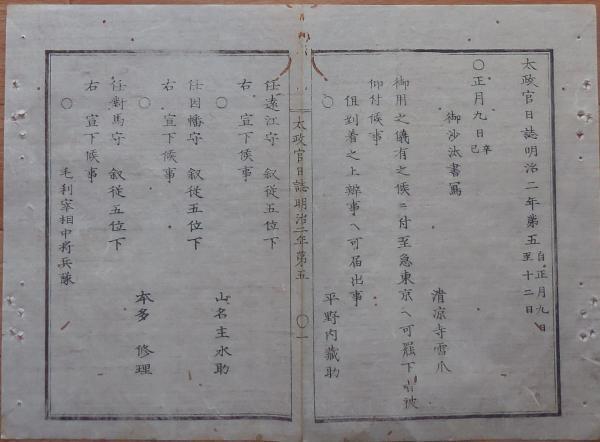 太政官日誌明治二年第五 自正月九日 至十二日
〇正月九日 辛巳
御沙汰書寫
清凉寺雪爪
御用之儀有之候ニ付至急東京ヘ可罷下旨被
仰付候事
但到着之上辨事ヘ可届出事
〇
平野内藏助
太政官日誌明治二年第五 〇一
任遠江守 叙從五位下
右 宣下候事
〇
山名主水助
任因幡守 叙從五位下
右 宣下候事
〇
本多 修理
任對馬守 叙從五位下
右 宣下候事
〇
毛利宰相中將兵隊